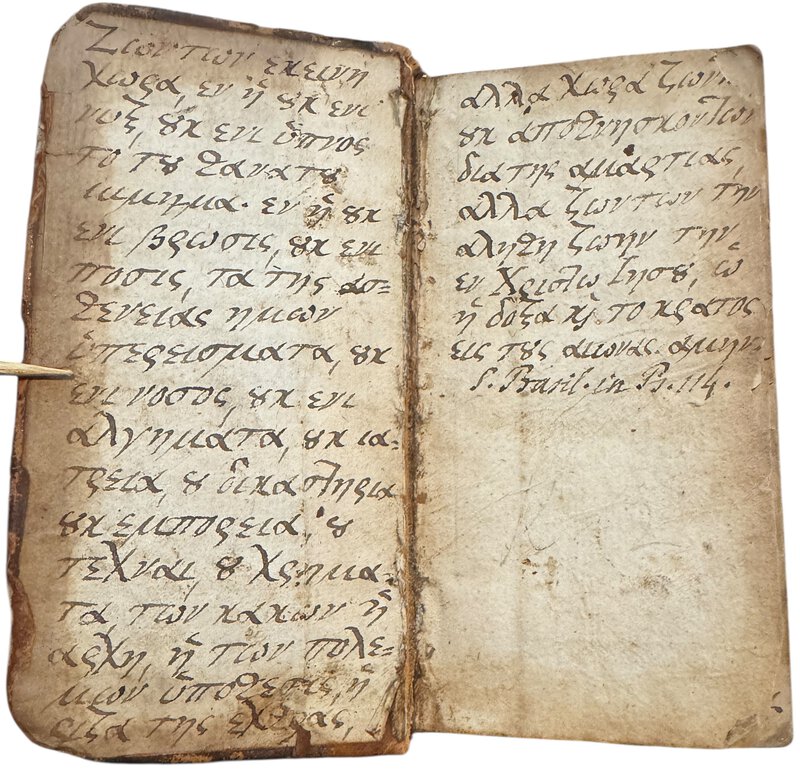 Ζωντων εκεινη
χωρα, εν ᾗ ȣκ ενι
νυξ, ȣκ ενι ὕπνος
το τȣ θανατȣ
μιμημα· εν ᾗ ȣκ
ενι βρωσις, ȣκ ενι
ποσις, τα της ασ=
θενειας ημων
ὑπερεισματα, ȣκ
ενι νοσος, ȣκ ενι
αλγηματα, ȣκ ια=
τρεια, ȣ δικαστηρια
ȣκ εμπορεια, ȣ
τεχναι, ȣ χρημα=
τα, των κακων ἡ
αρχη, ἡ των πολε=
μων ὑποθεσις, ἡ
ριζα της εχθρας,
αλλα χωρα ζων
ȣκ ἀποθνησκοντων
δια της αμαρτιας,
αλλα ζωντων την
αληθη ζωην την
εν Χριστω Ιησȣ, ῳ
ἡ δοξα ϗ το κρατος
εις τȣς αιωνας. αμην.
S. Basil. in Ps. 114.